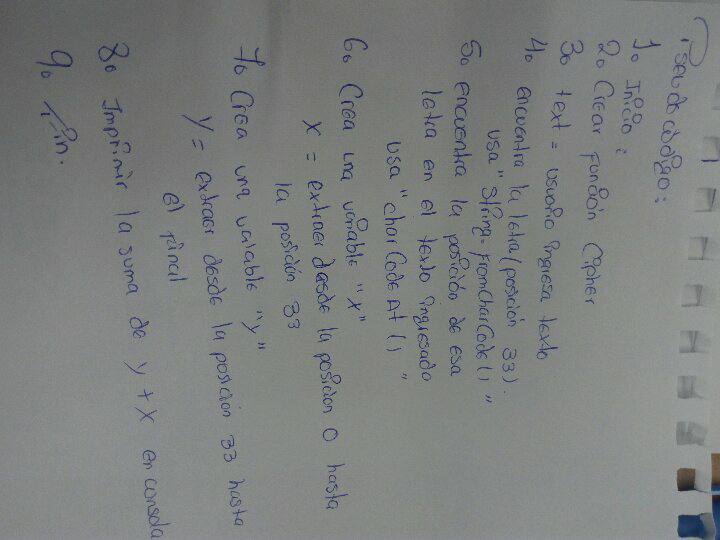 Pseudocódigo:
1. Inicio:
2. Crear función Cipher
3. text = usuario ingresa texto
4. encuentra la letra (posición 33).
usa "String.fromCharCode()"
5. encuentra la posición de esa
letra en el texto ingresado
usa "charCodeAt()"
6. Crea una variable "X"
X = extraer desde la posición 0 hasta
la posición 33
7. Crea una variable "y"
Y = extraer desde la posición 33 hasta
el final
8. Imprimir la suma de y + x en consola
9. Fin.